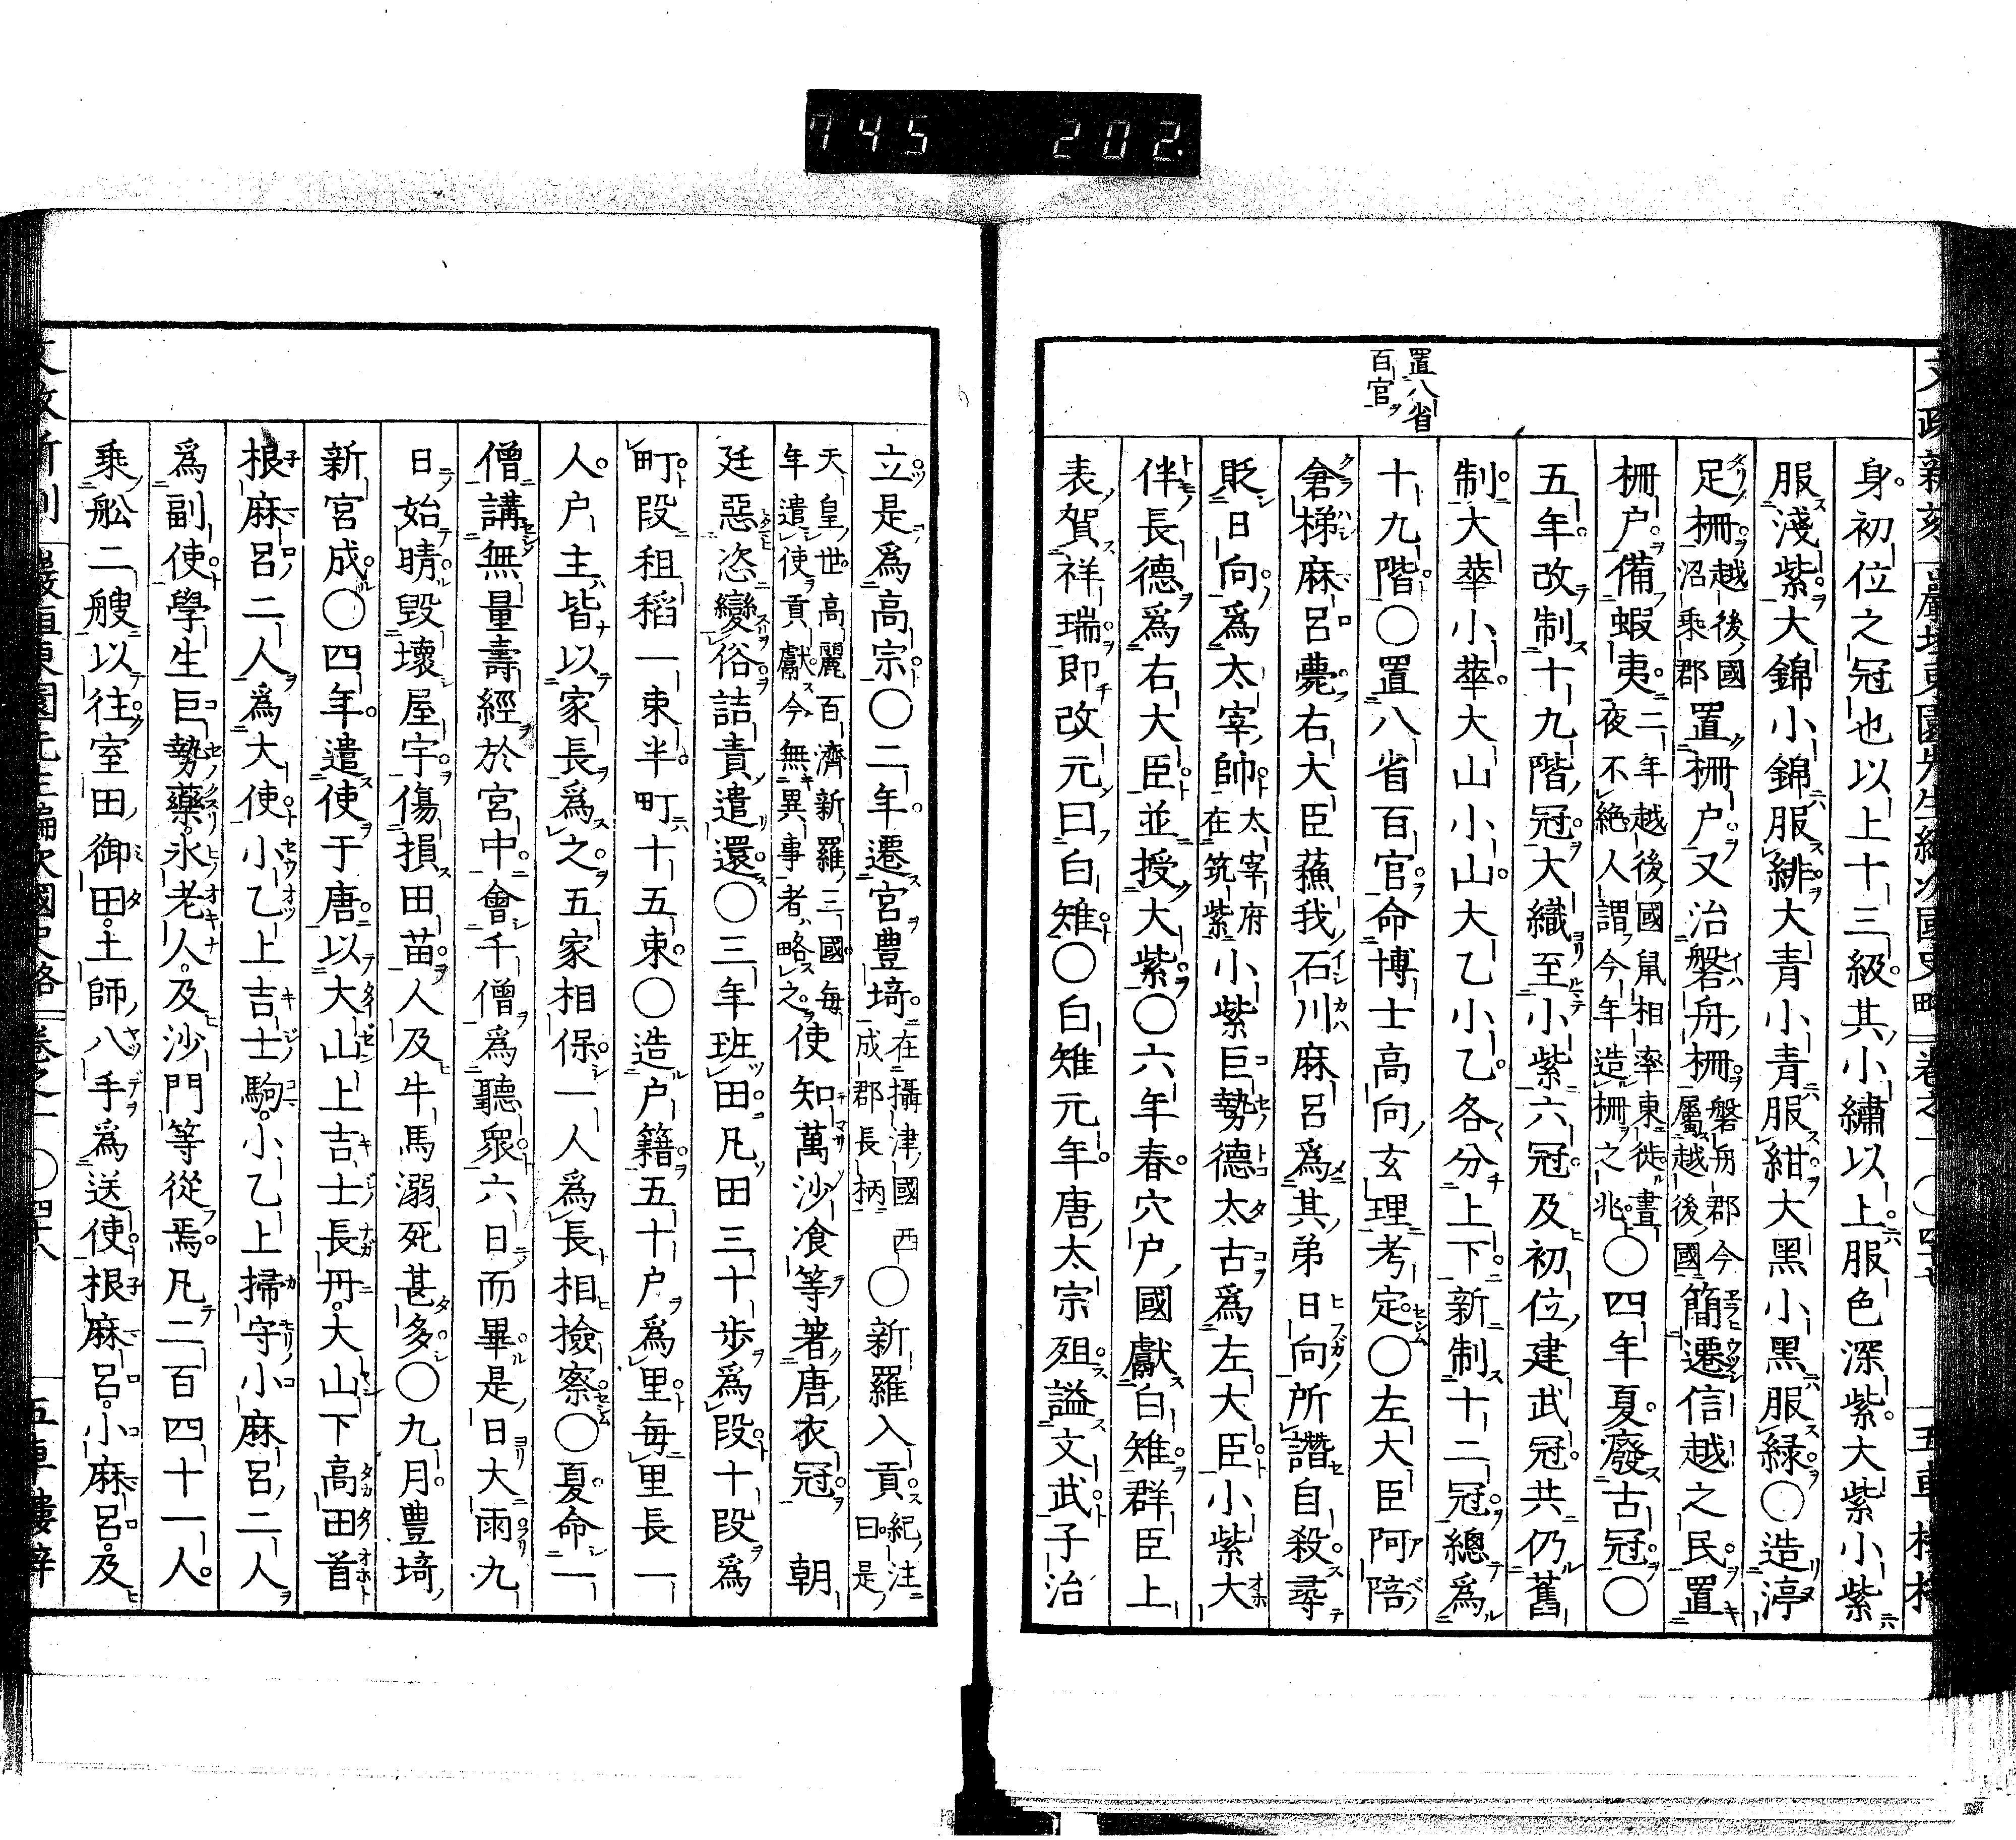 745 202.
置八省
百官
身初位之冠也以上十三級其小繡以上服色深紫大紫小紫
服淺紫大錦小錦服緋大青小青服紺大黑小黑服緑〇造渟
足柵越後國沼乘郡置柵户又治磐舟柵磐舟郡今屬越後國簡遷信越之民置
柵户備蝦夷二年越後國鼠相率東徙晝夜不絶人謂今年造柵之兆〇四年夏廢古冠〇
五年改制十九階冠大織至小紫六冠及初位建武冠共仍舊
制大華小華大山小山大乙小乙各分上下新制十二冠總爲
十九階〇置八省百官命博士高向玄理考定〇左大臣阿陪
倉梯麻呂薨右大臣蘓我石川麻呂爲其弟日向所譖自殺尋
貶日向爲太宰帥太宰府在筑紫小紫巨勢德太古爲左大臣小紫大
伴長德爲右大臣並授大紫〇六年春穴户國獻白雉群臣上
表賀祥瑞即改元曰白雉〇白雉元年唐太宗殂謚文武子治
立是爲高宗〇二年遷宮豊埼在攝津國西成郡長柄〇新羅入貢紀注曰是
天皇世高麗百濟新羅三國每年遣使貢獻今無異事者略之使知萬沙飡等著唐衣冠 朝
廷惡恣變俗詰責遣還〇三年班田凡田三十步爲段十段爲
町段租稻一束半町十五束〇造户籍五十户爲里每里長一
人户主皆以家長爲之五家相保一人爲長相撿察〇夏命一
僧講無量壽經於宮中會千僧爲聽衆六日而畢是日大雨九
日始晴毀壞屋宇傷損田苗人及牛馬溺死甚多〇九月豊埼
新宮成〇四年遣使于唐以大山上吉士長丹大山下高田首
根麻呂二人爲大使小乙上吉士駒小乙上掃守小麻呂二人
爲副使學生巨勢藥氷老人及沙門等從焉凡二百四十一人
乘舩二艘以往室田御田土師八手爲送使根麻呂小麻呂及